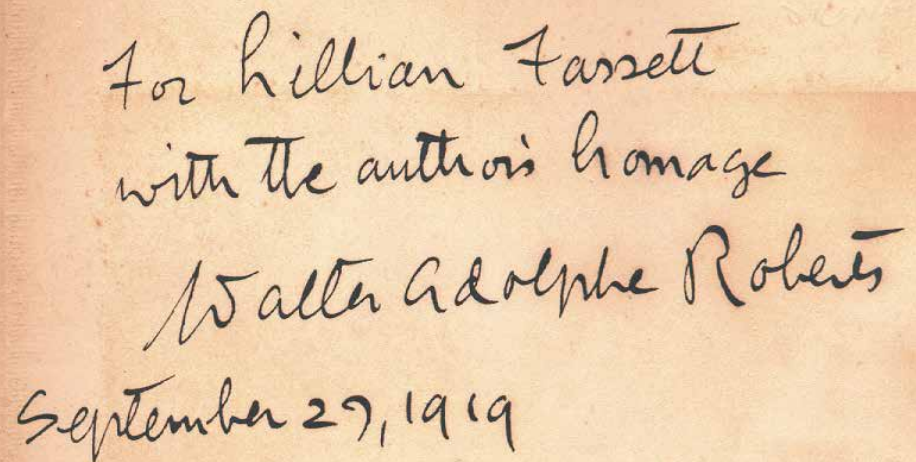 For Lillian Fassett
with the author's homage
Walter Adolphe Roberts
September 27, 1919